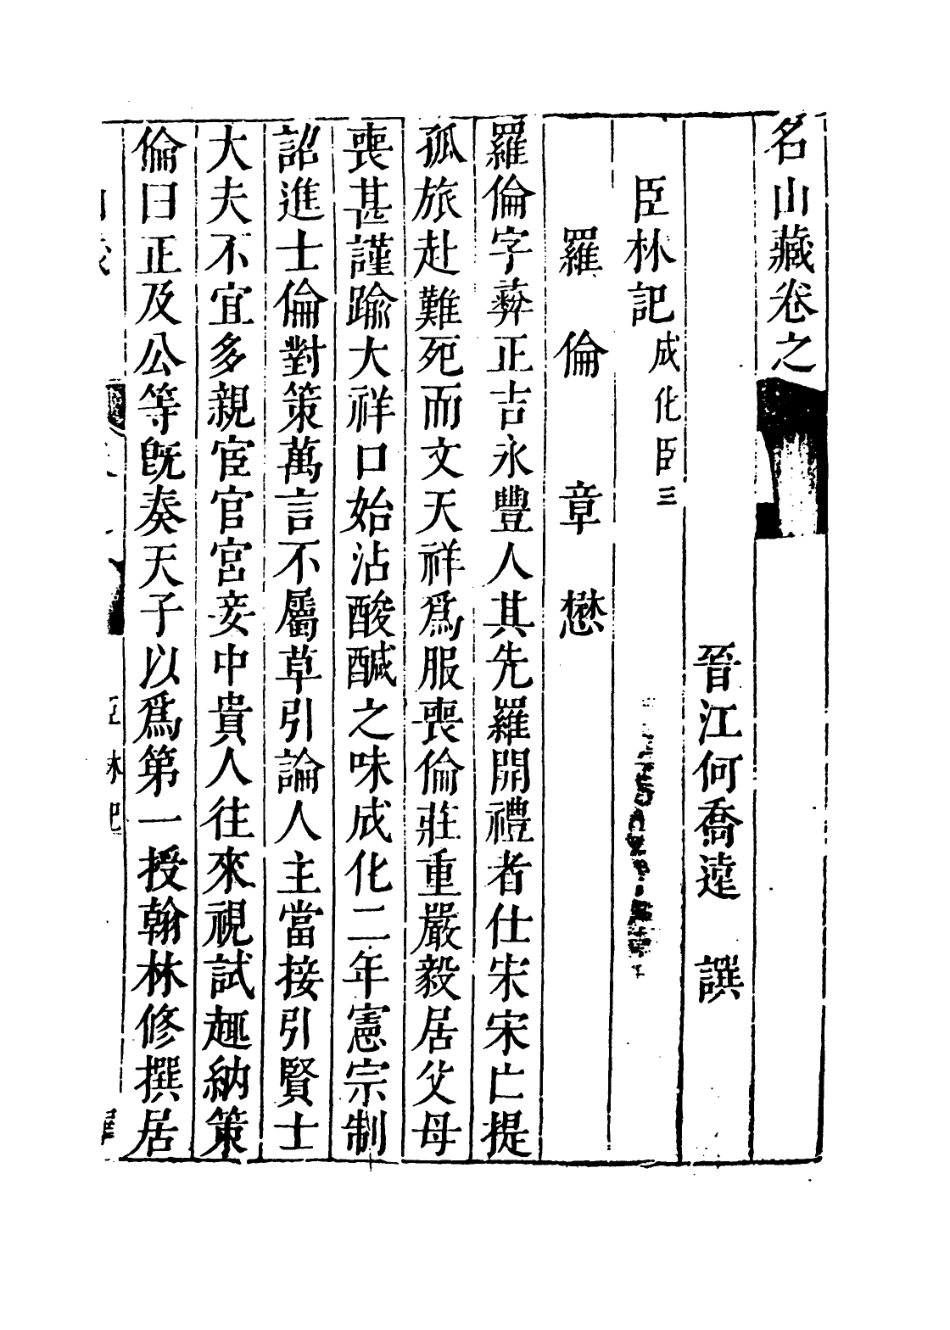 名山藏卷之
晉江何喬遠 譔
臣林記 成化臣三
羅倫 章懋
羅倫字彝正吉永豐人其先羅開禮者仕宋宋亡提
孤旅赴難死而文天祥爲服喪倫莊重嚴毅居父母
喪甚謹踰大祥口始沾酸醎之味成化二年憲宗制
詔進士倫對策萬言不屬草引論人主當接引賢士
大夫不宜多親宦官宮妾中貴人往來視試趣納策
倫曰正及公等旣奏天子以爲第一授翰林修撰居
臣林記